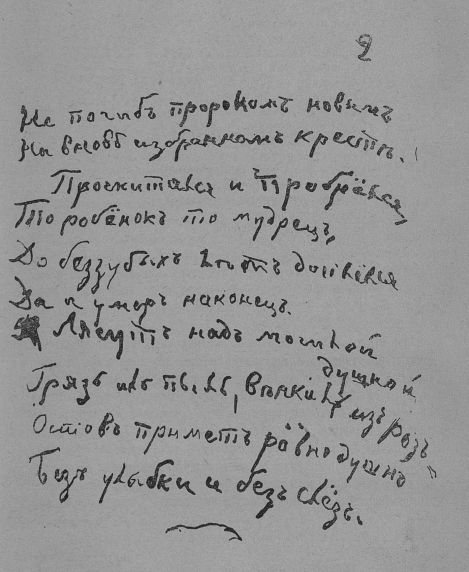 2
Не погибъ пророкомъ новымъ
На вновь избранномъ крестѣ.
Просчитался и
То робёнокъ то мудрецъ,
До беззубыхъ лѣтъ доплёлся
Да и умеръ наконецъ.
Лягутъ надъ могилой
душной
Грязь иль пыль, вѣнки изъ розъ
Остовъ приметъ равнодушно
Безъ улыбки и безъ слёзъ.